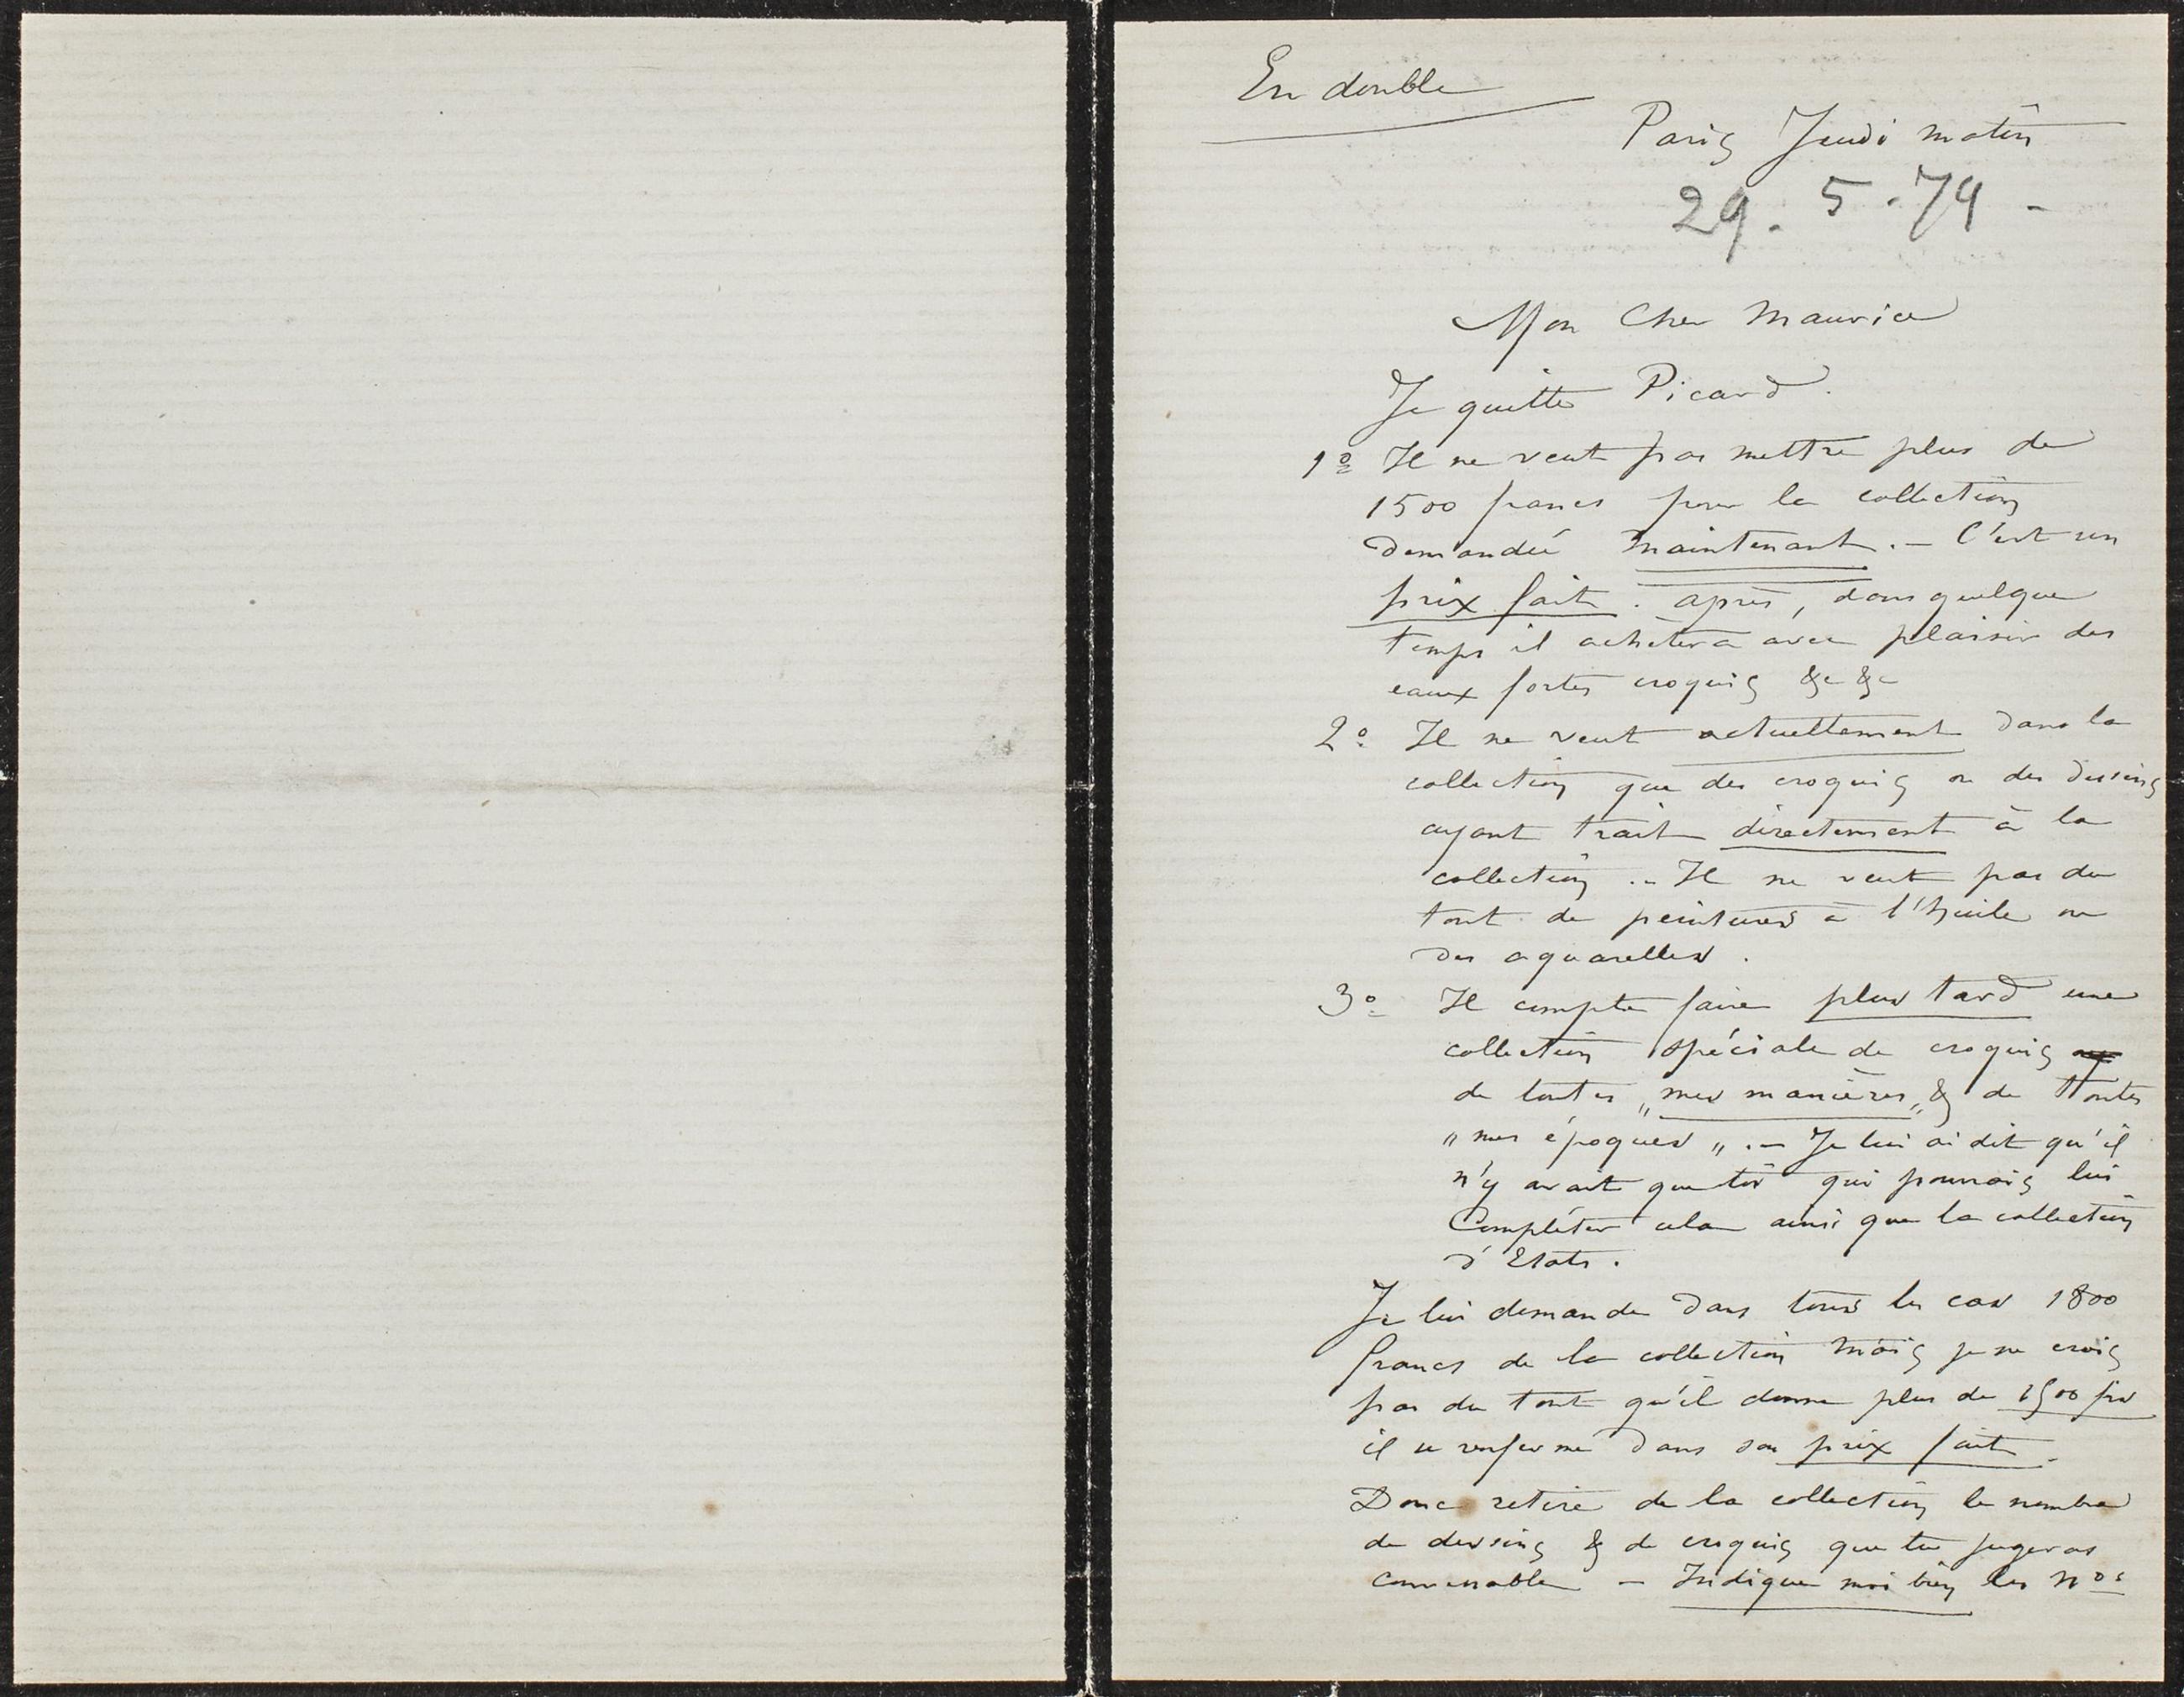 En double
Paris Jeudi matin
29. 5. 79 -
Mon Cher Maurice
Je quitte Picard.
1º Il ne veut pas mettre plus de
1500 francs pour la collection
demandée maintenant. — C'est un
prix fait. après, dans quelque
temps il achètera avec plaisir des
eaux fortes croquis &c &c
2º Il ne veut actuellement dans la
collection que des croquis ou des dessins
ayant trait directement à la
collection .. Il ne veut pas du
tout de peintures à l'huile ou
des aquarelles.
3º Il compte faire plus tard une
collection spéciale de croquis
de toutes „mes manières„ & de toutes
„mes époques„. — Je lui ai dit qu'il
n'y avait que toi qui pouvais lui
Compléter cela ainsi que la collection
d'Etats.
Je lui demande dans tous les cas 1800
francs de la collection Mais je ne crois
pas du tout qu'il donne plus de 1500 frs
il se renferme dans son prix fait.
Donc retire de la collection le nombre
de dessins & de croquis que tu jugeras
convenable — Indique moi bien les Nos